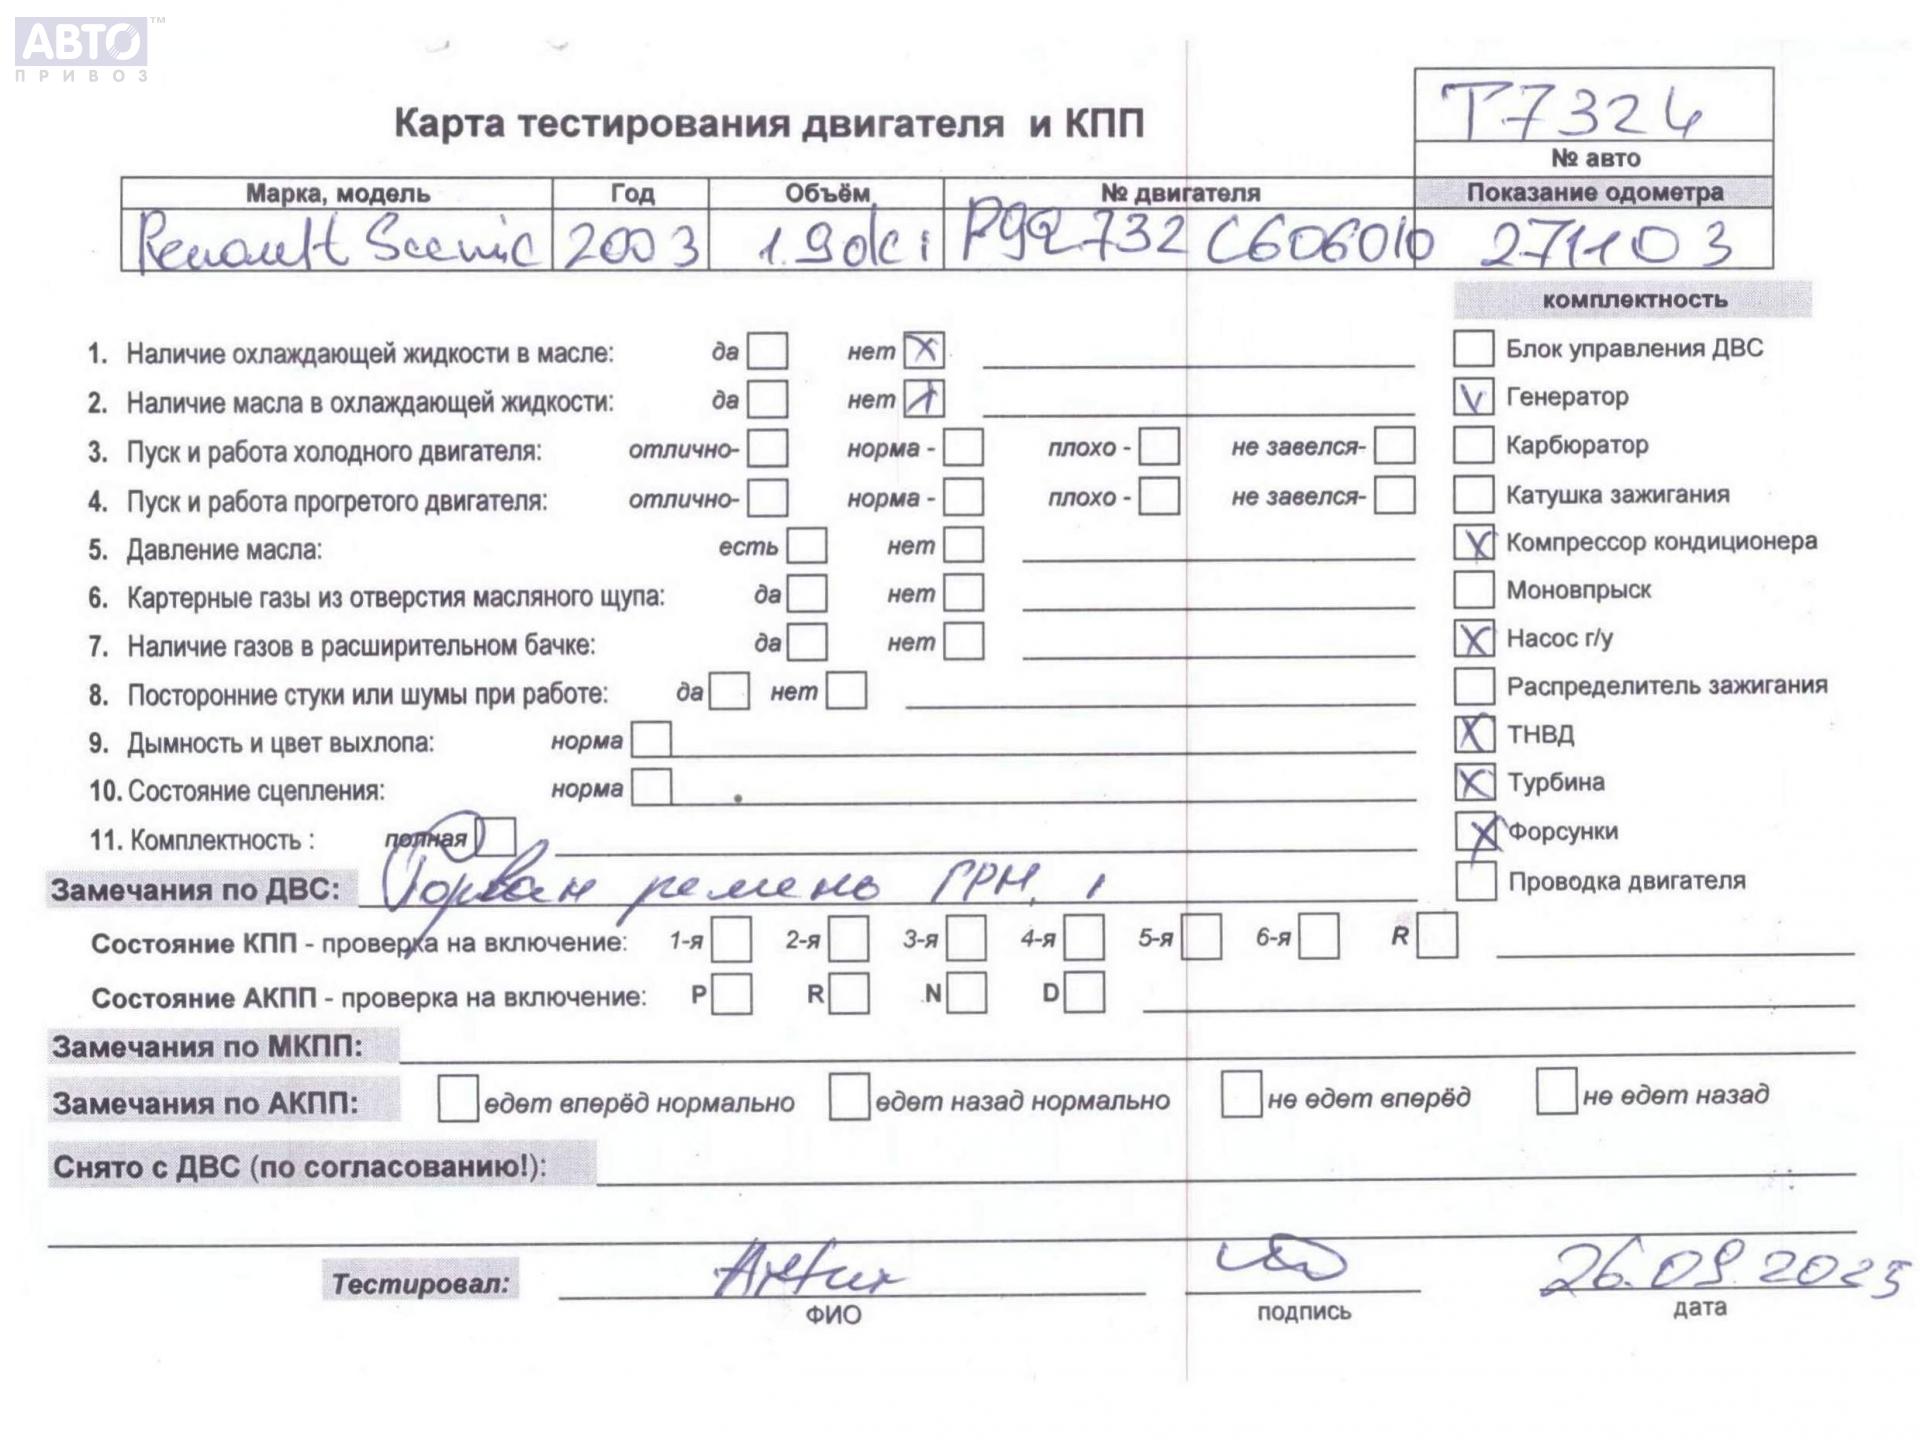 АВТО™
ПРИВОЗ
Т7324
Карта тестирования двигателя и КПП
№ авто
Марка, модель Год Объём № двигателя Показание одометра
Renault Scenic 2003 1.9dci F9Q.732 C606010 271103
комплектность
1. Наличие охлаждающей жидкости в масле: да нет X Блок управления ДВС
2. Наличие масла в охлаждающей жидкости: да нет Генератор V
3. Пуск и работа холодного двигателя: отлично- норма - плохо - не завелся- Карбюратор
4. Пуск и работа прогретого двигателя: отлично- норма - плохо - не завелся- Катушка зажигания
5. Давление масла: есть нет X Компрессор кондиционера
6. Картерные газы из отверстия масляного щупа: да нет Моновпрыск
7. Наличие газов в расширительном бачке: да нет X Насос г/у
8. Посторонние стуки или шумы при работе: да нет Распределитель зажигания
9. Дымность и цвет выхлопа: норма X ТНВД
10. Состояние сцепления: норма X Турбина
11. Комплектность : полная X Форсунки
Замечания по ДВС: Порван ремень ГРМ, Проводка двигателя
Состояние КПП - проверка на включение: 1-я 2-я 3-я 4-я 5-я 6-я R
Состояние АКПП - проверка на включение: P R N D
Замечания по МКПП:
Замечания по АКПП: едет вперёд нормально едет назад нормально не едет вперёд не едет назад
Снято с ДВС (по согласованию!):
Тестировал: Артur 26.09.2025
ФИО подпись дата